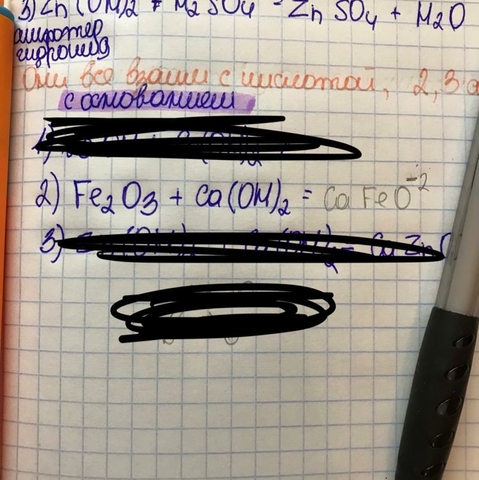 3) Zn(OH)2 + H2SO4 - ZnSO4 + H2O
амфотер
гидроксид
Они все взаим с кислотой, 2,3
с основанием
1)
2) Fe2O3 + Ca(OH)2 = CaFeO⁻²
3)